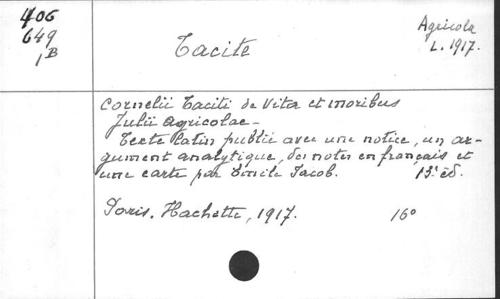 406
649
1B
Tacite
Agricola
L. 1917.
Cornelii Taciti de Vita et moribus
Julii Agricolae-
Texte latin publié avec une notice, un ar-
gument analytique, des notes en français et
une carte par Emile Jacob. 13e éd.
Paris. Hachette, 1917. 16°